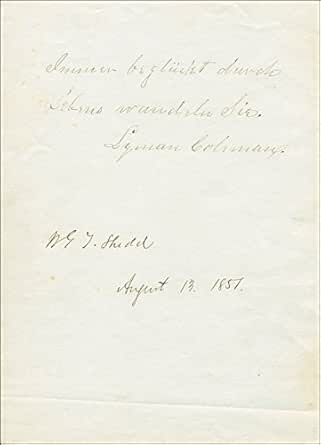 Immer beglückt durch
Lebens wandeln Sie.
Lyman Coleman.
W G T. Shedd
August 13. 1851.